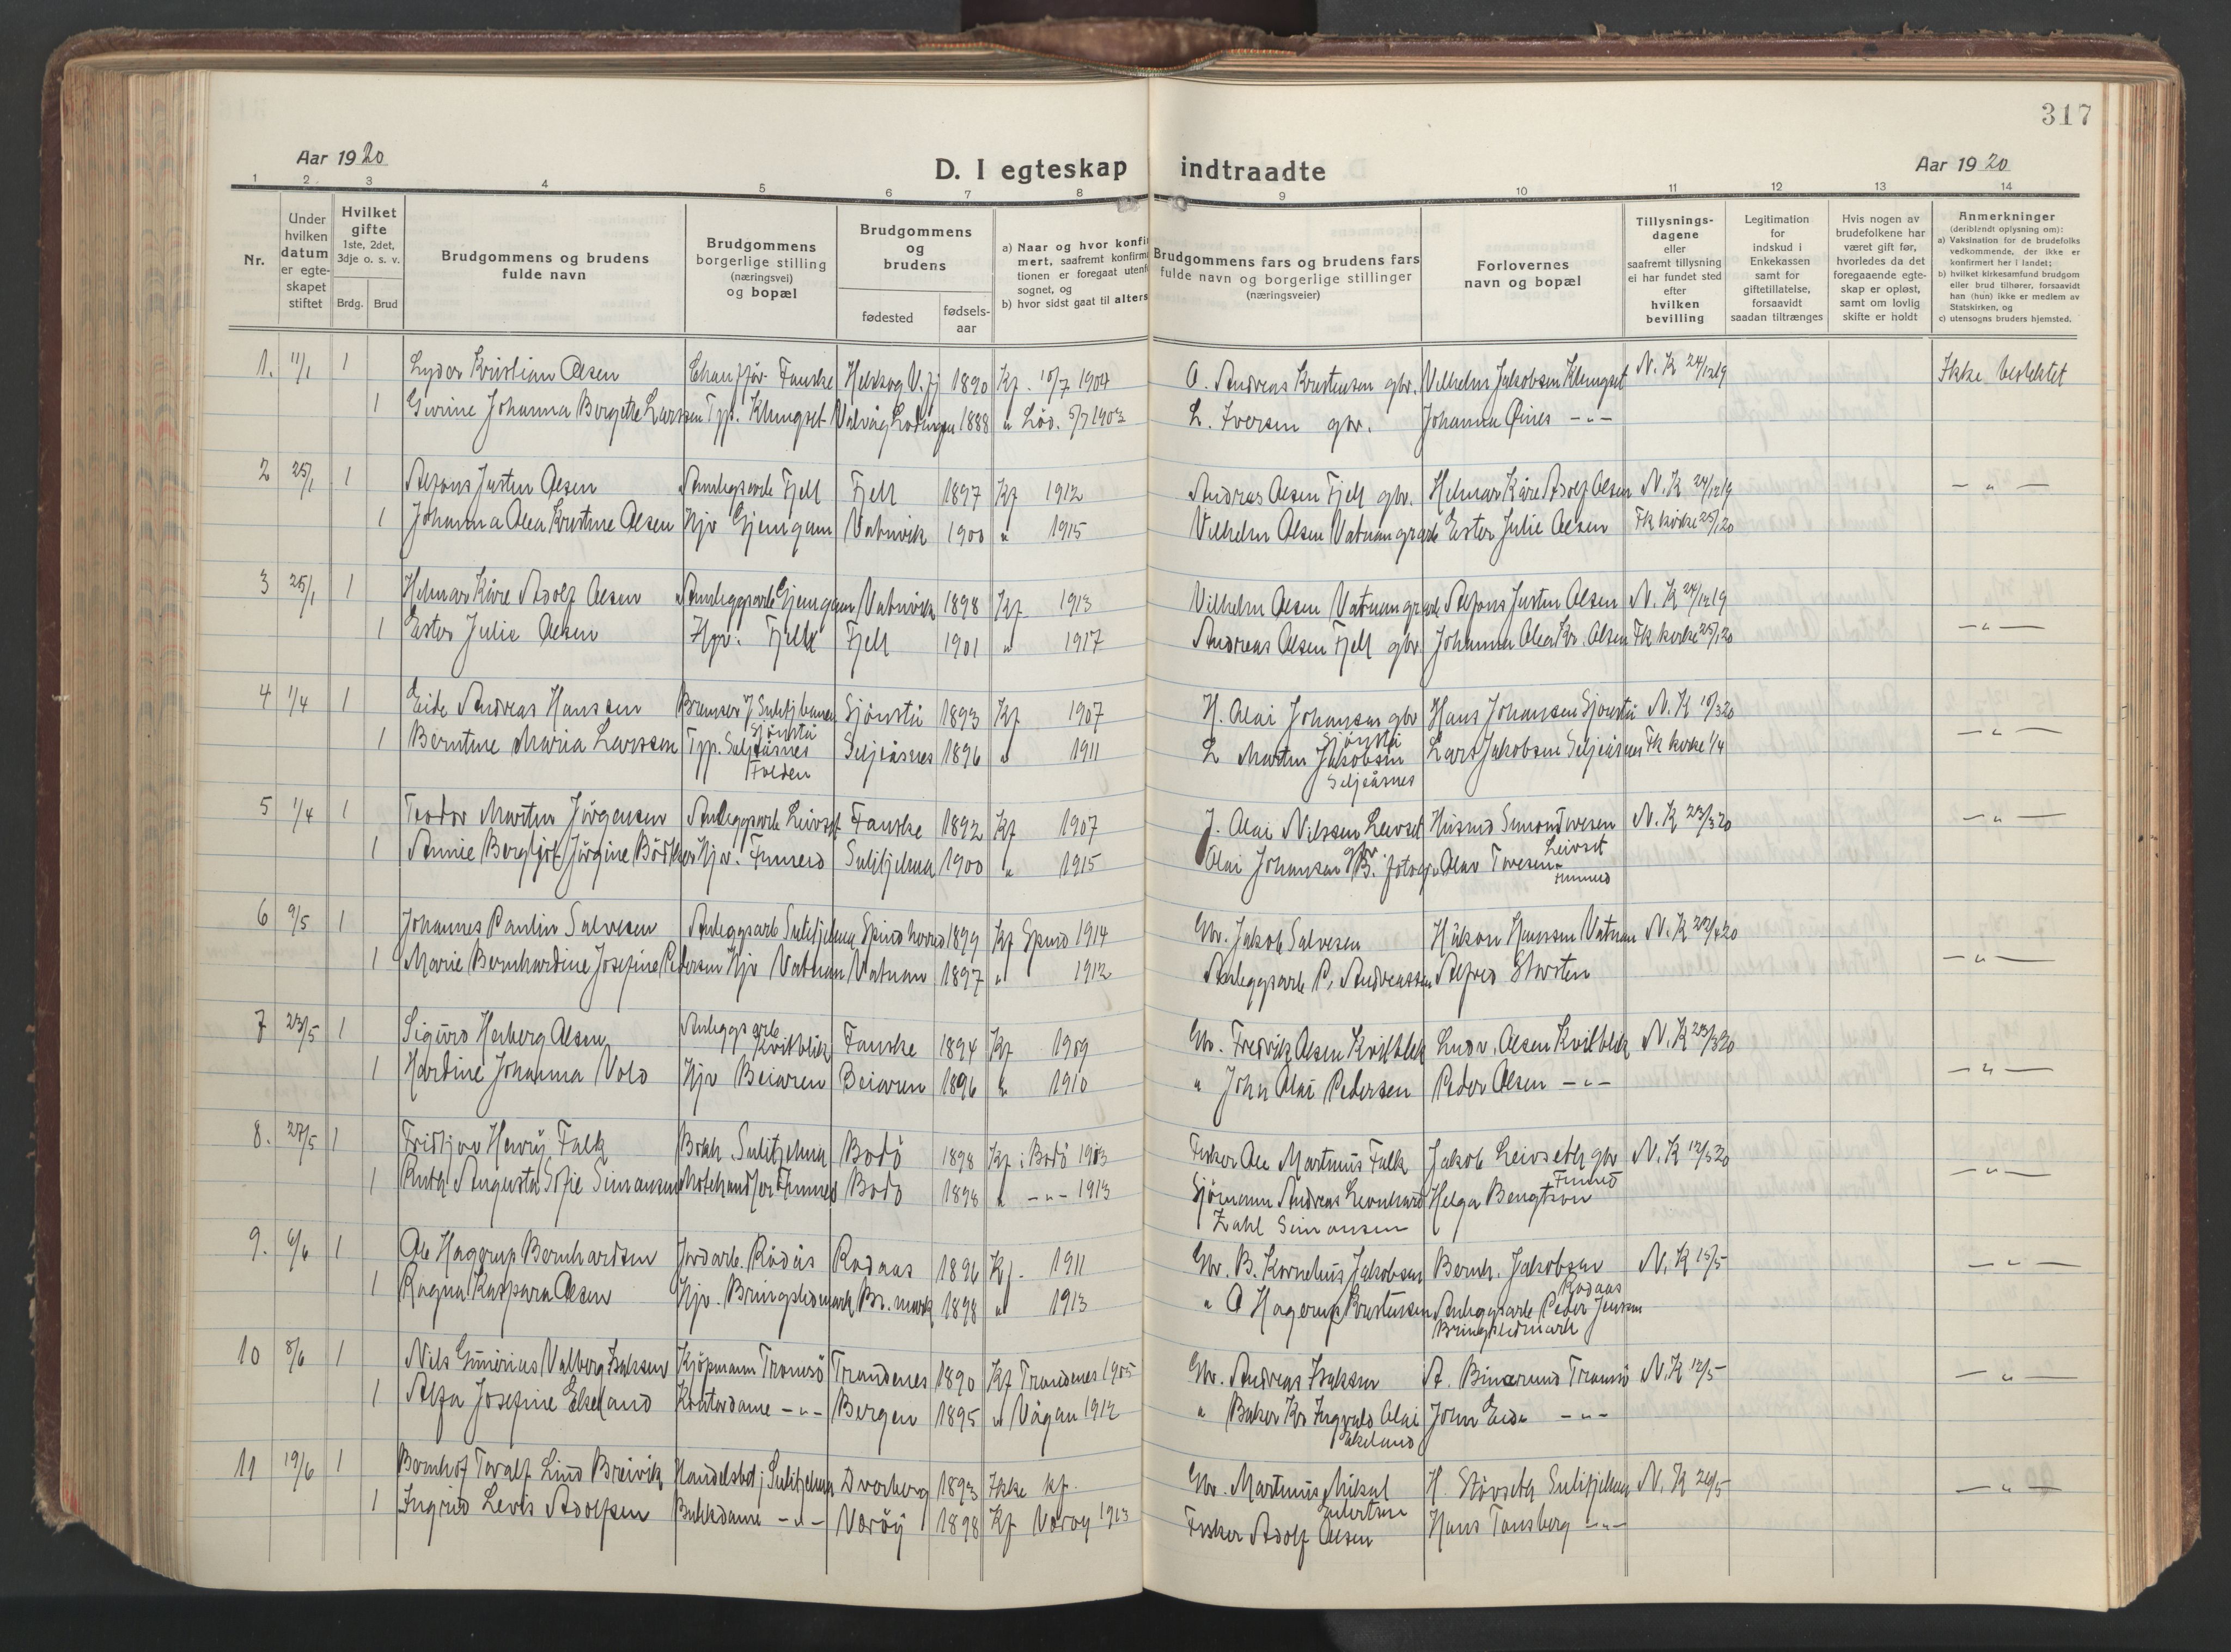 317
Aar 1920
D. I egteskap indtraadte
Aar 1920
1 2 3 4 5 6 7 8 9 10 11 12 13 14
Nr.
Under hvilken datum er egte-skapet stiftet
Hvilket gifte 1ste, 2det, 3dje o. s. v.
Brdg. Brud
Brudgommens og brudens fulde navn
Brudgommens borgerlige stilling (næringsvei) og bopæl
Brudgommens og brudens
fødested
fødsels-aar
a) Naar og hvor konfi
mert, saafremt konfirma
tionen er foregaat utenf
sognet, og
b) hvor sidst gaat til alters
Brudgommens fars og brudens fars fulde navn og borgerlige stillinger (næringsveier)
Forlovernes navn og bopæl
Tillysnings-dagene eller saafremt tillysning ei har fundet sted efter hvilken bevilling
Legitimation for indskud i Enkekassen samt for giftetillatelse, forsaavidt saadan tiltrænges
Hvis nogen av brudefolkene har været gift før, hvorledes da det foregaaende egte-skap er opløst, samt om lovlig skifte er holdt
Anmerkninger (deriblandt oplysning om):
a) Vaksination for de brudefolks vedkommende, der ikke er konfirmert her i landet;
b) hvilket kirkesamfund brudgom eller brud tilhører, forsaavidt han (hun) ikke er medlem av Statskirken, og
c) utensogns bruders hjemsted.
1. 11/1 1 Lyder Kristian Olsen Chauffør Fauske 1890 Kf. 10/7 1904 O. Andreas Kristensen gbr. Vilhelm Jakobsen Klungset N. K 24/12 19 Ikke beslektet
1 Johanna Bergette Larssen Tpp. Klungset Lødingen 1888 " Lød. 5/7 1903 L. Iversen gbr. Johanna Øines -"-
2 25/1 1 Alfons Justin Olsen Anlegsarb Fjell Fjell 1897 Kf 1912 Andreas Olsen Fjell gbr. Helmar Kåre Adolf Olsen N. K 24/12 19 - " -
1 Johanna Olea Kristine Olsen Hjv Gjemgam Vatnvik 1900 " 1915 Vilhelm Olsen Vatnan grarb Ester Julie Olsen Fk kirke 25/1 20
3 25/1 1 Helmar Kåre Adolf Olsen Anleggsarb Gjemgam Vatnvik 1898 Kf 1913 Vilhelm Olsen Vatnan grarb Alfons Justin Olsen N. K 24/12 19
1 Ester Julie Olsen Hjv. Fjell Fjell 1901 " 1917 Andreas Olsen Fjell gbr. Johanna Olea Kr. Olsen Fk kirke 25/1 20 - " -
4 1/4 1 Eide Andreas Hanssen Bremser v Sulitjbanen Sjönstå Sjönstå 1893 Kf 1907 H. Olai Johansen gbr Sjönstå Hans Johansen Sjönstå N. K 10/3 20
1 Berntine Maria Larssen Tpp. Seljeåsnes Folden Seljeåsnes 1896 " 1911 L Martin Jakobsen Seljeåsnes Lars Jakobsen Seljeåsnes Fk kirke 1/4 - " -
5 1/4 1 Teodor Martin Jörgensen Anleggsarb Leivset Fauske 1892 Kf 1907 J. Olai Nilssen Leivset gbr Leivset N. K 23/3 20 - " -
1 Annie Bergljot Jörgine Hjv. Finneid Sulitjelma 1900 " 1915 Olai Johansen B. fotogr Olav Tovesen Finneid
6 9/5 1 Johannes Paulin Salvesen Anleggsarb Sulitjelma Spind herred 1899 Kf Spind 1914 Gbr. Jakob Salvesen Håkon Hanssen Vatnan N. K 22/4 20
1 Marie Bernhardine Josefine Pedersen Hjv Vatnan Vatnan 1897 " 1912 Anleggsarb P. Andreassen Alfred Storsten - " -
7 23/5 1 Sigurd Herberg Olsen Anleggsarb Kvitblik Fauske 1894 Kf 1909 Gbr. Fredrik Olsen Kvitblik Ludv. Olsen Kvitblik N. K 23/3 20
1 Hardine Johanna Vold Hjv Beiaren Beiaren 1896 " 1910 " John Olai Pedersen Peder Olsen -"- - " -
8. 27/5 1 Fridtjov Henry Falk Bokh. Sulitjelma Bodö 1898 Kf i Bodö 1913 Fisker Ole Martinus Falk Jakob Leivseth gbr Finneid N. K 12/5 20
1 Ruth Augusta Sofie Simonsen Finneid Bodö 1898 " -"- 1913 Sjömann Andreas Leonhard Zahl Simonsen Helga Bengtson - " -
9. 6/6 1 Ole Hagerup Bernhardsen Jordarb. Rödås Rödaas 1896 Kf. 1911 Gbr. B. Kornelius Jakobsen Bernh. Jakobsen Rödaas N. K 15/5 - " -
1 Ragna Kaspara Olsen Hjv. Bringslidmark Br. mark 1898 " 1913 " O Hagerup Kristensen Anleggsarb Peder Jenssen Bringslidmark
10 8/6 1 Nils Valberg Isaksen Kjöpmann Tromsö Trondenes 1890 Kf Trondenes 1905 Gbr. Andreas Isaksen Tromsö N. K 12/5 - " -
1 Alfa Josefine Ekeland Kontordame -"- Bergen 1895 " Vågan 1912 " Baker Kr Ingvald Olai Ekeland John Eide -"-
11 19/6 1 Bernhof Toralf Lind Breivik Handelsbetj Sulitjelma Dverberg 1893 Ikke kf. Gbr. Martinus Mikal H. Stövseth Sulitjelma N. K 26/5 - " -
1 Ingrid Levis Adolfsen Butikdame -"- Værøy 1898 Kf Væroy 1913 Fisker Adolf Olsen Hans Tønsberg -"-